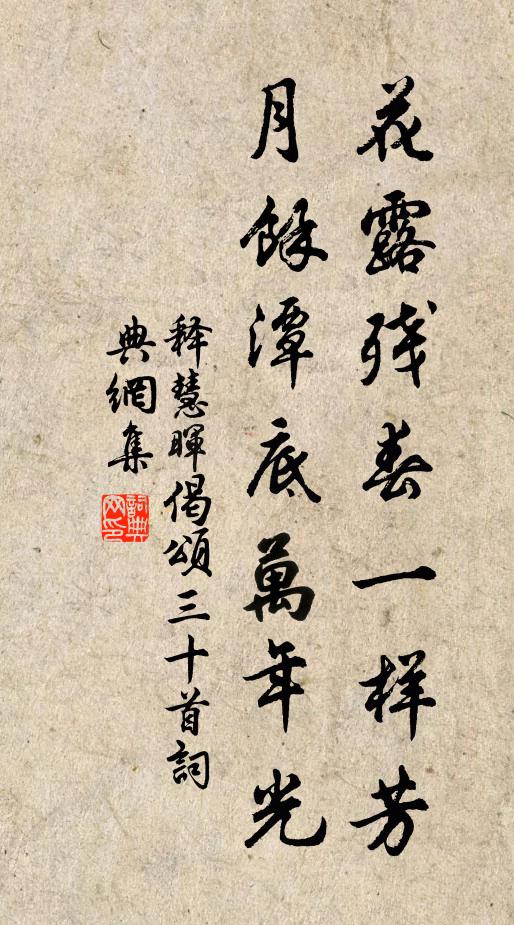 花露残春一样芳
月馀潭底萬年光
释慧暉偈頌三十首詞
典網集
詞典网印